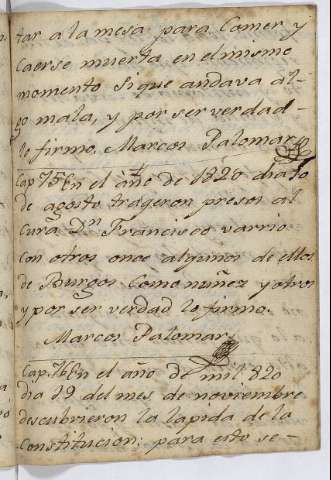 tar a la mesa para Comer y
Caerse muerta en el mismo
momento si que andava al-
go mala, y por ser verdad
lo firmo. Marcos Palomar
Cap. 75 En el año de 1820 dia 10
de agosto trageron presos al
Cura Dn Francisco varrio
con otros once algunos de ellos
de Burgos Como nuñez y otros
y por ser verdad lo firmo.
Marcos Palomar
Cap. 76 En el año de mil 820
dia 19 del mes de noviembre
descubrieron la lapida de la
Constitucion: para esto se-